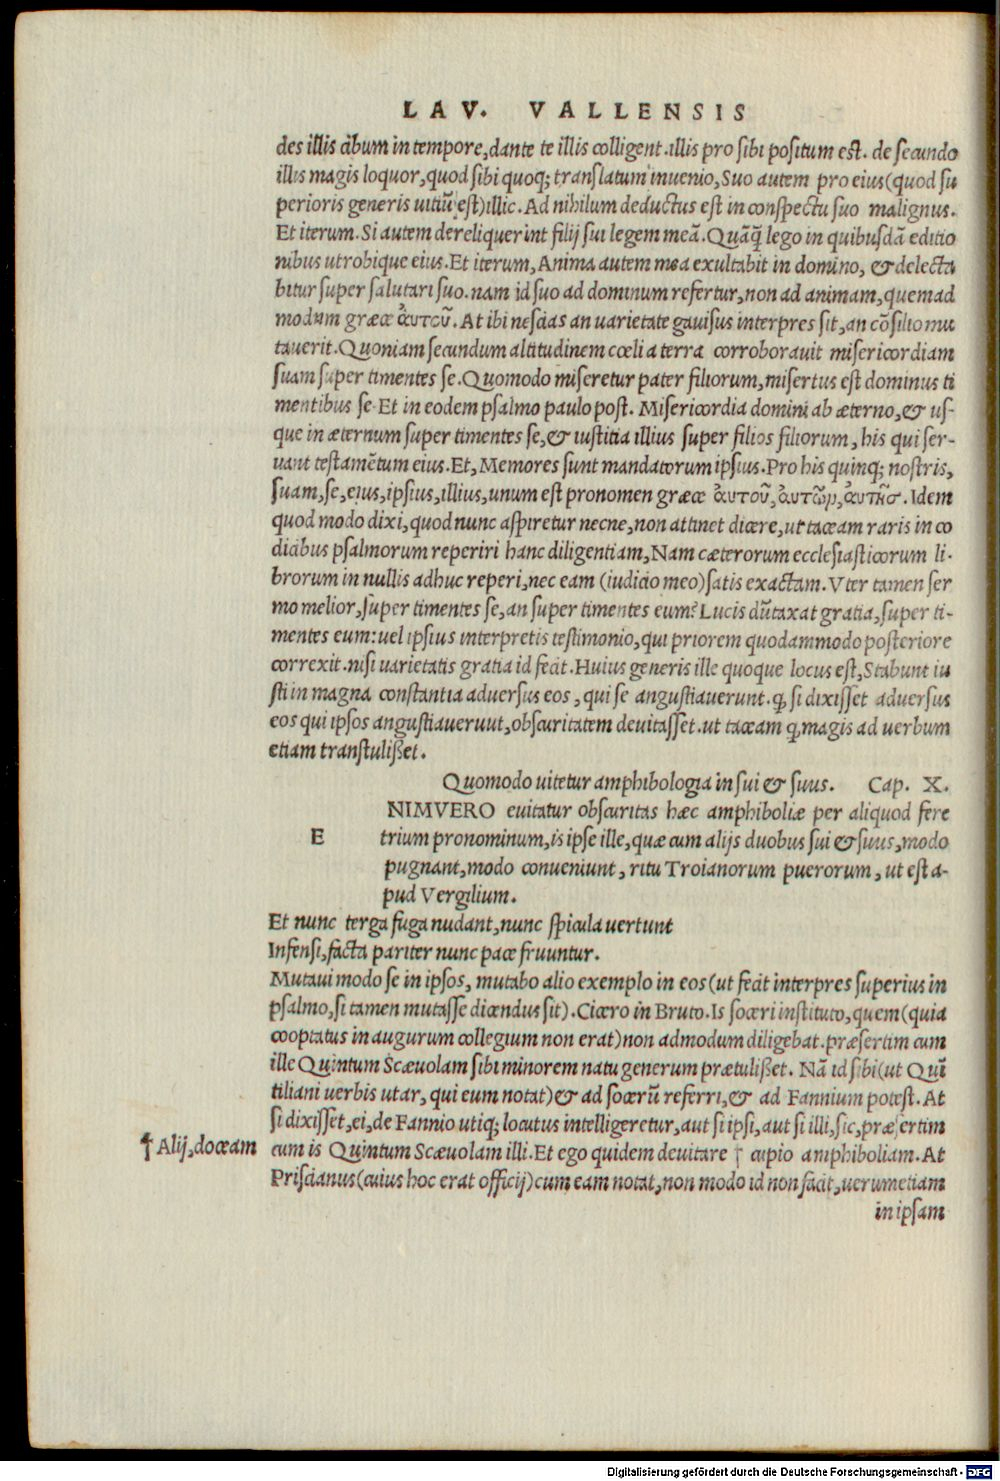 LAV. VALLENSIS
des illis cibum in tempore, dante te illis colligent. illis pro sibi positum est. de secundo
illis magis loquor, quod sibi quoq; translatum inuenio, Suo autem pro eius (quod su
perioris generis uitiũ est) illic. Ad nihilum deductus est in conspectu suo malignus.
Et iterum. Si autem dereliquerint filij sui legem meã. Quãq̃ lego in quibusdã editio
nibus utrobique eius. Et iterum, Anima autem mea exultabit in domino, & delecta
bitur super salutari suo. nam id suo ad dominum refertur, non ad animam, quemad
modum græce ἁυτοῦ. At ibi nescias an uarietate gauisus interpres sit, an cõsilio mu
tauerit. Quoniam secundum altitudinem cœli a terra corroborauit misericordiam
suam super timentes se. Quomodo miseretur pater filiorum, misertus est dominus ti
mentibus se. Et in eodem psalmo paulo post. Misericordia domini ab æterno, & us-
que in æternum super timentes se, & iustitia illius super filios filiorum, his qui ser-
uant testamẽtum eius. Et, Memores sunt mandatorum ipsius. Pro his quinq; nostris,
suam, se, eius, ipsius, illius, unum est pronomen græce ἁυτοῦ, ἁυτῶν, ἁυτῆσ. Idem
quod modo dixi, quod nunc aspiretur necne, non attinet dicere, ut taceam raris in co
dicibus psalmorum reperiri hanc diligentiam, Nam cæterorum ecclesiasticorum li-
brorum in nullis adhuc reperi, nec eam (iudicio meo) satis exactam. Vter tamen ser
mo melior, super timentes se, an super timentes eum? Lucis dũtaxat gratia, super ti-
mentes eum: uel ipsius interpretis testimonio, qui priorem quodammodo posteriore
correxit. nisi uarietatis gratia id fecit. Huius generis ille quoque locus est, Stabunt iu
sti in magna constantia aduersus eos, qui se angustiauerunt. q̃ si dixisset aduersus
eos qui ipsos angustiauerunt, obscuritatem deuitasset. ut taceam q̃ magis ad uerbum
etiam transtulißet.
Quomodo uitetur amphibologia in sui & suus. Cap. X.
ENIMVERO euitatur obscuritas hæc amphiboliæ per aliquod fere
trium pronominum, is ipse ille, quæ cum alijs duobus sui & suus, modo
pugnant, modo conueniunt, ritu Troianorum puerorum, ut est a-
pud Vergilium.
Et nunc terga fuga nudant, nunc spicula uertunt
Infensi, facta pariter nunc pace fruuntur.
Mutaui modo se in ipsos, mutabo alio exemplo in eos (ut fecit interpres superius in
psalmo, si tamen mutasse dicendus sit). Cicero in Bruto. Is soceri instituto, quem (quia
cooptatus in augurum collegium non erat) non admodum diligebat. præsertim cum
ille Quintum Scæuolam sibi minorem natu generum prætulißet. Nã id sibi (ut Quĩ
tiliani uerbis utar, qui eum notat) & ad socerũ referri, & ad Fannium potest. At
si dixisset, ei, de Fannio utiq; locutus intelligeretur, aut si ipsi, aut si illi, sic, præsertim
cum is Quintum Scæuolam illi. Et ego quidem deuitare † cupio amphiboliam. At
† Alij, doceam
Priscianus (cuius hoc erat officij) cum eam notat, non modo id non facit, uerumetiam
in ipsam
Digitalisierung gefördert durch die Deutsche Forschungsgemeinschaft - DFG